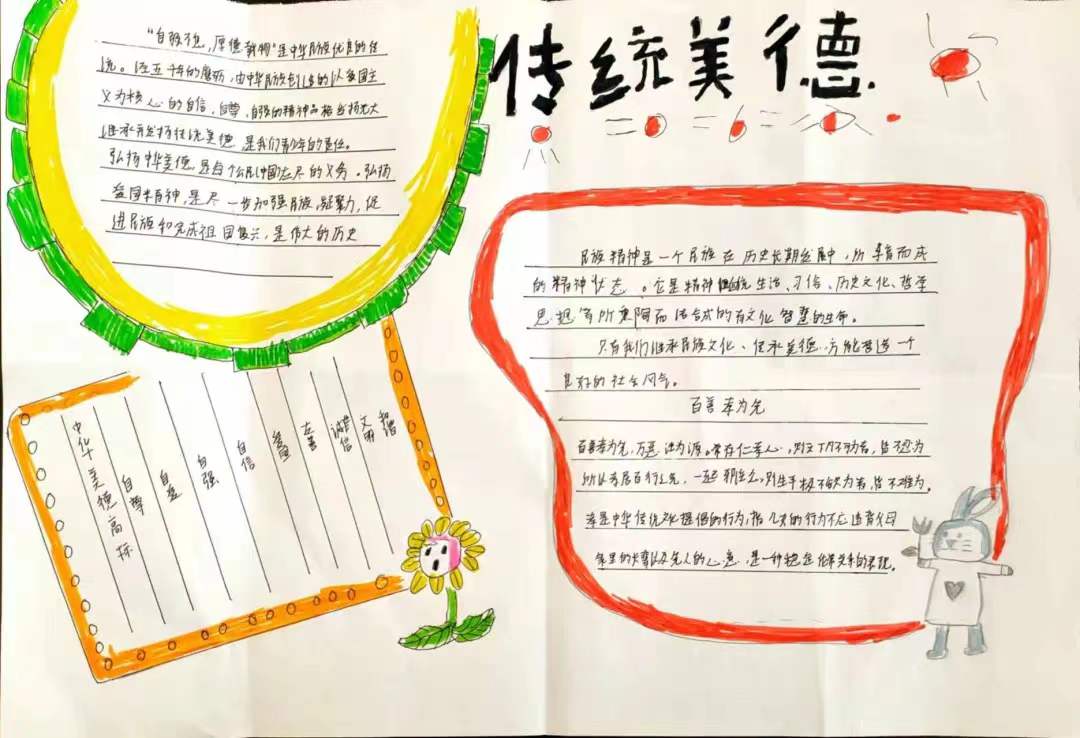 传统美德
"自强不息,厚德载物"是中华民族优良的传
统。在五千年的历,由中华民族的以爱国主
义为核心的自信、自尊、自强的精神品格发扬光大
继承并发扬传统美德 是我们青少年的责任。
弘扬中华美德,是每个公民中国应尽的义务。弘扬
爱国精神,是尽一步加强民族凝聚力,促
进民族和完成祖国复兴,是伟大的历史
中华美德高标
自尊
自爱
自强
自信
爱国
友善
诚信
文明
和谐
民族精神是一个民族在历史长期发展中,所孕育而成
的精神状态。它是精神传统生活、习俗、历史文化、哲学
思想等所而结合成的有文化智慧的生命。
只有我们继承民族文化、传承美德.方能营造一个
良好的社会风气。
百善孝为先
百善孝为先,万恶淫为源。常存仁孝心,则天下不可为者,皆不忍为
所以孝居百行之先,一起邪淫念,则生平极不欲为者,皆不难为。
孝是中华传统文化提倡的行为,指儿女的行为不应违背父母
家里的长辈以及先人的心意,是一种稳定伦常关系的表现。